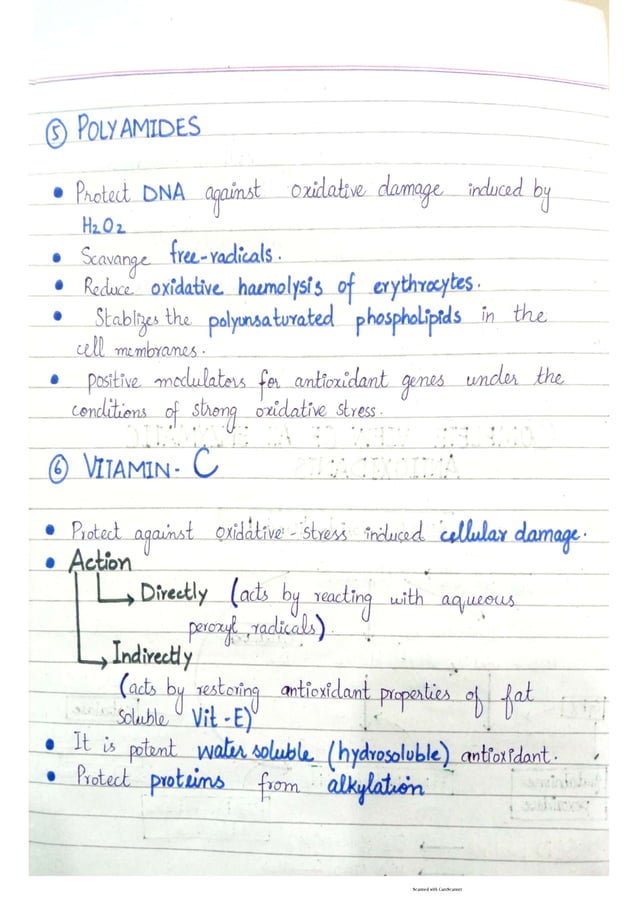 ⑤ POLYAMIDES
• Protect DNA against oxidative damage induced by
H2O2
• Scavange free-radicals.
• Reduce oxidative haemolysis of erythrocytes.
• Stablizes the polyunsaturated phospholipids in the
cell membranes.
• positive modulators for antioxidant genes under the
conditions of strong oxidative stress.
⑥ VITAMIN- C
• Protect against oxidative - stress induced cellular damage.
• Action
Directly (acts by reacting with aqueous
peroxyl radicals).
Indirectly
(acts by restoring antioxidant properties of fat
soluble Vit-E)
• It is potent water soluble (hydrosoluble) antioxidant.
• Protect proteins from alkylation
Scanned with CamScanner